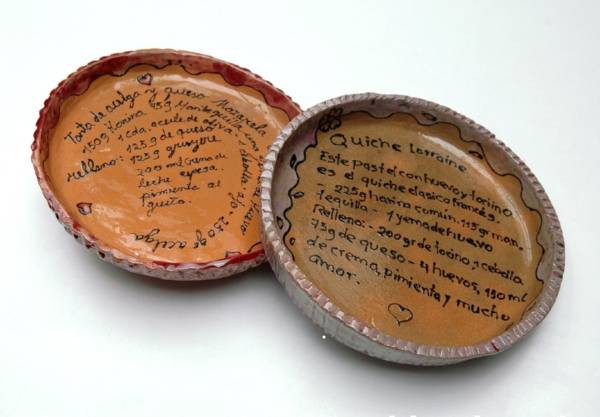 Torta de acelga y queso Mozarela
150g Harina 75g Mantequilla
1 cda. aceite de oliva. 1 cebolla
Relleno: 125g de queso
125g gruyere
200 ml Crema de
leche espesa.
pimienta al
gusto.
acelga
Quiche lorraine
Este pastel con huevos y tocino
es el quiche clasico francés.
225g harina comun. 115gr man-
tequilla. 1 yema de huevo
Relleno. 200gr de tocino, 1 cebolla
75g de queso - 4 huevos, 150 ml
de crema, pimienta y mucho
amor.